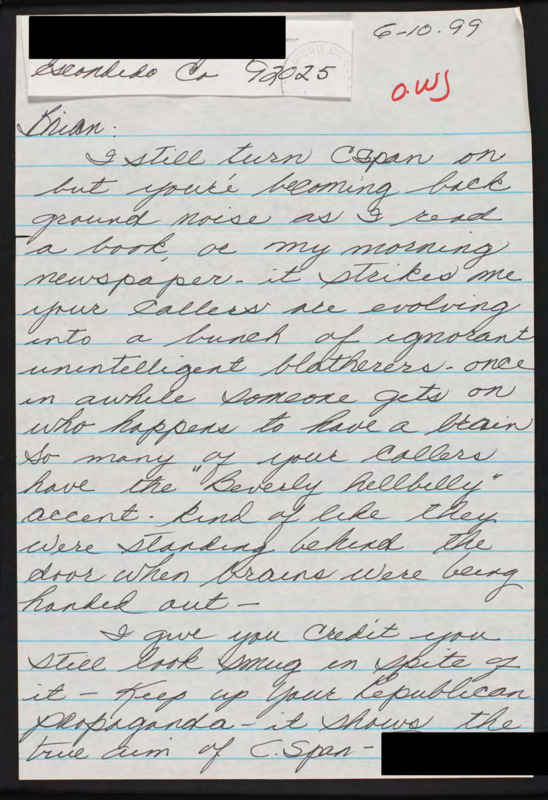 6-10.99
Escondido Ca 92025
OWJ
Brian:
I still turn CSpan on
but you're becoming back
ground noise as I read
a book, or my morning
newspaper - it strikes me
your callers are evolving
into a bunch of ignorant
unintelligent blatherers - once
in awhile someone gets on
who happens to have a brain
So many of your callers
have the "Beverly hellbilly"
accent - kind of like they
were standing behind the
door when brains were being
handed out -
I give you credit you
still look smug in spite of
it - Keep up your Republican
propaganda - it shows the
true aim of C.Span -